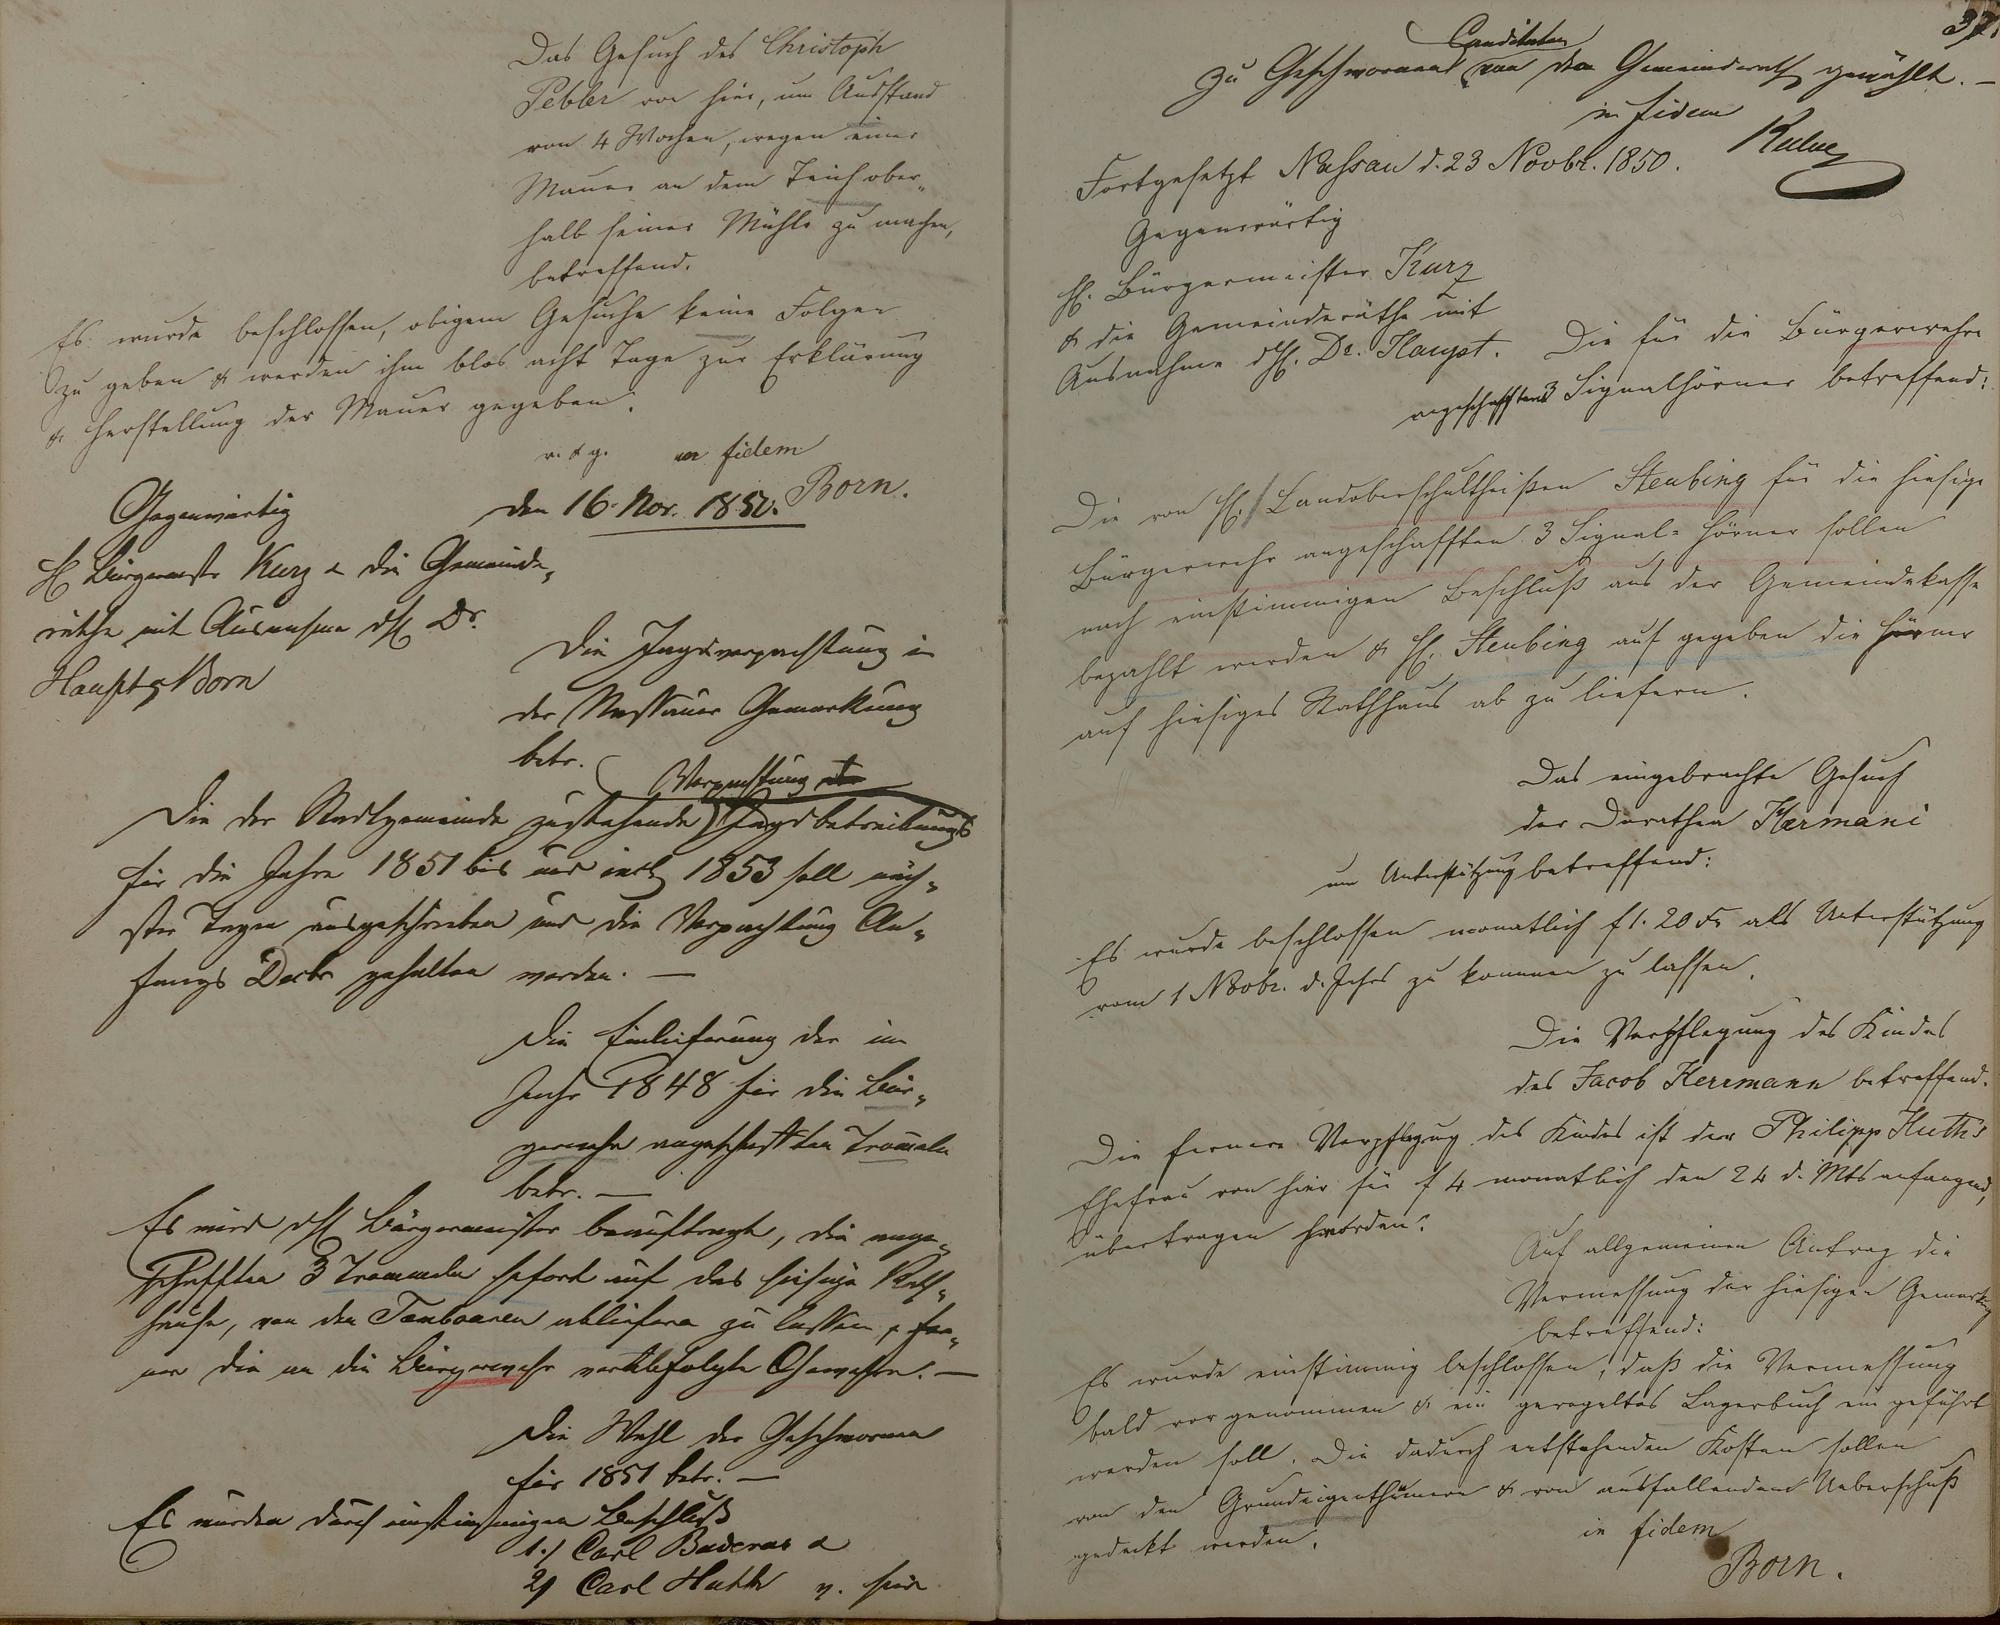 Das Gesuch des Christoph
Pebler von hier, um Ausstand
von 4 Wochen, wegen einer
Mauer an dem Teich ober„
halb seiner Mühle zu machen,
betreffend.
Es wurde beschlossen, obigem Gesuche keine Folgen
zu geben & werden ihm blos acht Tage zur Erklärung
& Herstellung der Mauer gegeben.
v. & g. in fidem
Born.
den 16. Nov. 1850.
Gegenwärtig
H Bürgermstr Kurz & die Gemeinde„
räthe mit Ausnahme dH Dr.
Haupt & Born
Die Jagdverpachtung in
der Nassauer Gemarkung
betr.
Verpachtung
Die der Stadtgemeinde zustehende Jagdbetreibungs
für die Jahre 1851 bis und incl 1853 soll näch„
ster Tagen ausgeschrieben und die Verpachtung An„
fangs Decbr gehalten werden. —
Die Einlieferung der im
Jahr 1848 für die Bür„
gerwehr angeschafften Tromeln
betr. —
Es wird dH Bürgermeister beauftragt, die ange„
schafften 3 Trommeln sofort auf das hiesige Rath„
hause, von den Tambouren abliefern zu lassen, & fer„
ner die an die Bürgerwehr verabfolgte Gewehre. —
Die Wahl der Geschwornen
für 1851 betr. —
Es wurden durch einstimmigen Beschluß
1./ Carl Buderus &
2/ Carl Huth v. hier
37.
Canditaten
zu Geschwornen von dem Gemeinderath gewählt. —
in fidem
Fortgesetzt Nassau d. 23 Novbr. 1850.
Gegenwärtig
H. Bürgermeister Kurz
& die Gemeinderäthe mit
Ausnahme dH. Dr. Haupt.
Die für die Bürgerwehr
angeschafften 3 Signalhörner betreffend:
Die von H. Landoberschultheißen Steubing für die hiesige
Bürgerwehr angeschafften 3 Signal-Hörner sollen
nach einstimmigen Beschluß aus der Gemeindekasse
bezahlt werden & H. Steubing auf gegeben die Hörner
auf hiesiges Rathhaus ab zu liefern.
Das eingebrachte Gesuch
der Dorathea Hermani
um Unterstützung betreffend:
Es wurde beschlossen monatlich f 1. 20 Xr als Unterstützung
vom 1 Novbr. d. Jahrs zu kommen zu lassen.
Die Verpflegung des Kindes
des Jacob Herrmann betreffend.
Die fernere Verpflegung des Kindes ist der Philipp Huth's
Ehefrau von hier für f 4 monatlich den 24 d. Mts anfangend,
übertragen worden.
Auf allgemeinen Antrag die
Vermessung der hiesigen Gemarkung
betreffend:
Es wurde einstimmig beschlossen, daß die Vermessung
bald vor genommen & ein geregeltes Lagerbuch ein geführt
werden soll. Die dadurch entstehenden Kosten sollen
von den Grundeigenthümern & von ausfallendem Ueberschuß
gedeckt werden.
in fidem
Born.